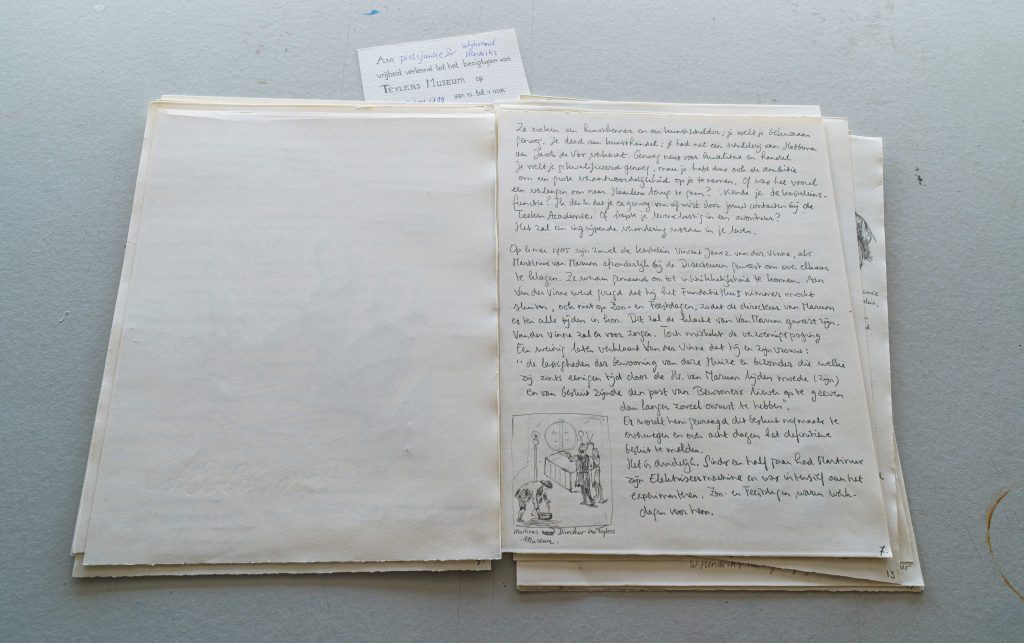 Aan pietsjanke 2u Wybrand
Hendriks
vrijheid verleend tot het bezigtigen van
TEYLERS MUSEUM op
1799 van 12 tot 1 uur
Ze zoeken een kunstkenner en een kunstschilder; je voelt je bekwaam
genoeg. Je deed aan kunsthandel; je had net een schilderij van Hobbema
aan Jacob de Vos verkocht. Genoeg neus voor kwaliteit en handel
Je voelt je gekwalificeerd genoeg, maar je hebt dan ook de ambitie
om een grote verantwoordelijkheid op je te nemen. Of was het vooral
een verlangen om naar Haarlem terug te gaan? Kende je de kasteleins-
functie? Ik denk dat je er genoeg van af wist door jouw contacten bij de
Teeken Academie. Of stapte je levenslustig in een avontuur?
Het zal een ingrijpende verandering worden in je leven.
Op 6 mei 1785 zijn zowel de kastelein Vincent Jansz van der Vinne, als
Martinus van Marum afzonderlijk bij de Directeuren geweest om over elkaar
te klagen. Ze werden gemaand om tot inschikkelijkheid te komen. Aan
Van der Vinne werd gezegd dat hij het Fundatiehuis nimmer mocht
sluiten, ook niet op Zon- en Feestdagen, zodat de directeur van Marum
er ten alle tijden in kon. Dit zal de klacht van Van Marum geweest zijn.
Van der Vinne zal er voor zorgen. Toch mislukt de verzoeningspoging.
Een weinig later verklaart Van der Vinne dat hij en zijn vrouw:
"de lastigheden der bewooning van deze Huize en bizonder die welke
zij zints eenigen tijd door de Hr. van Marum lijden moede (zijn)
en van besluit zijnde den post van Bewooners liever op te geeven
dan langer zoveel onrust te hebben".
Er wordt hem gevraagd dit besluit nogmaals te
overwegen en over acht dagen het definitieve
besluit te melden.
Het is duidelijk. Sinds een half jaar had Martinus
zijn Elektriseermachine en was intensief aan het
experimenteren. Zon- en Feestdagen waren werk-
dagen voor hem.
Martinus Directeur van Teylers
Museum.
7
W. Hendriks
13